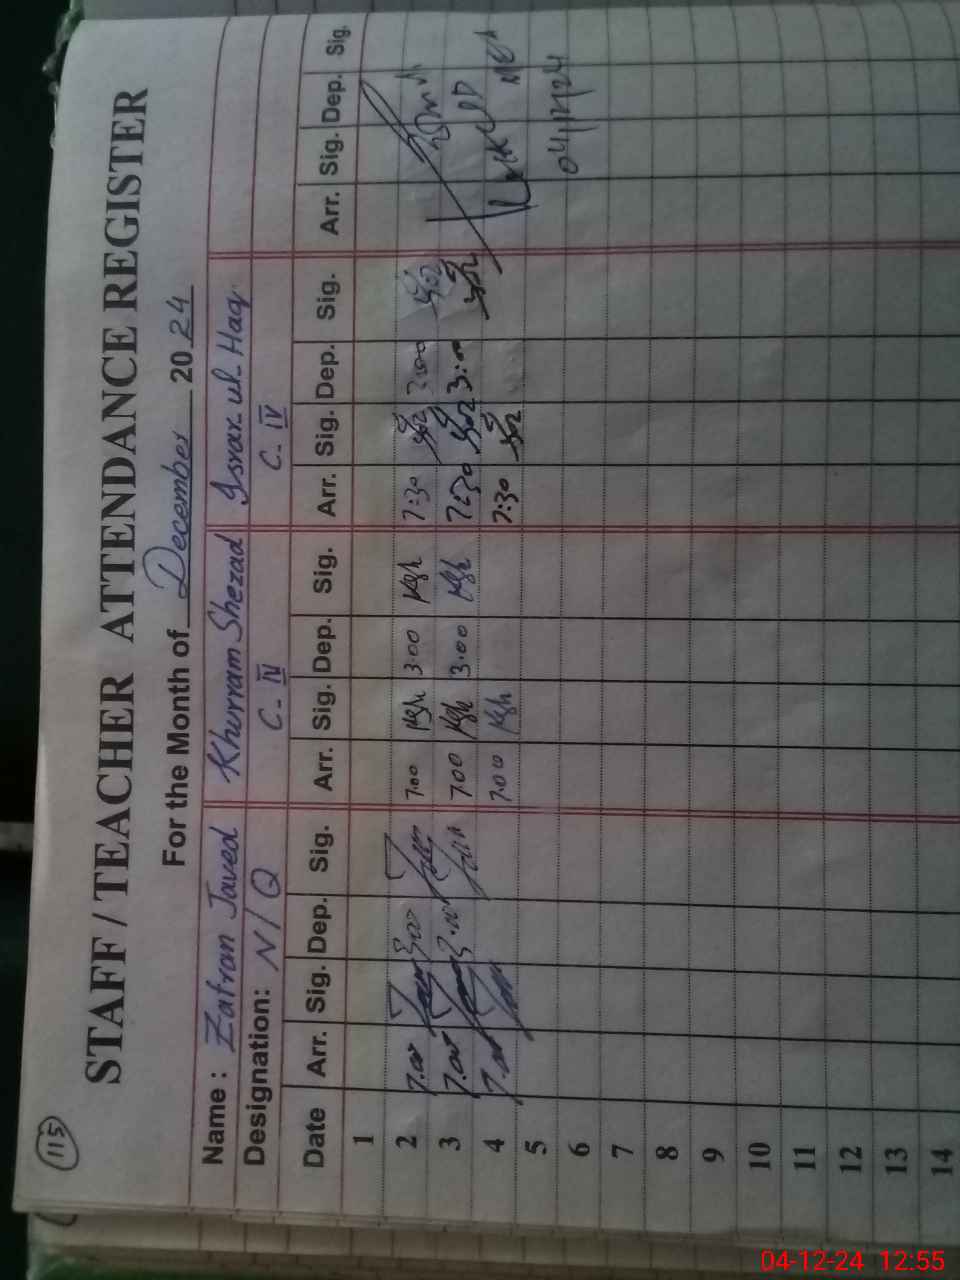 115
STAFF / TEACHER ATTENDANCE REGISTER
For the Month of December 2024
Name : Zafran Javed Khurram Shezad Israr ul Haq
Designation: N/Q C-IV C-IV
Date Arr. Sig. Dep. Sig. Arr. Sig. Dep. Sig. Arr. Sig. Dep. Sig. Arr. Sig. Dep. Sig.
1
2 7.00 3.00 7.00 3.00 7:30 3:00
3 7.00 3.00 7.00 3.00 7:30 3:00
4 7.00 7.00 7:30
MEA
04/12/24
5
6
7
8
9
10
11
12
13
14
04-12-24 12:55